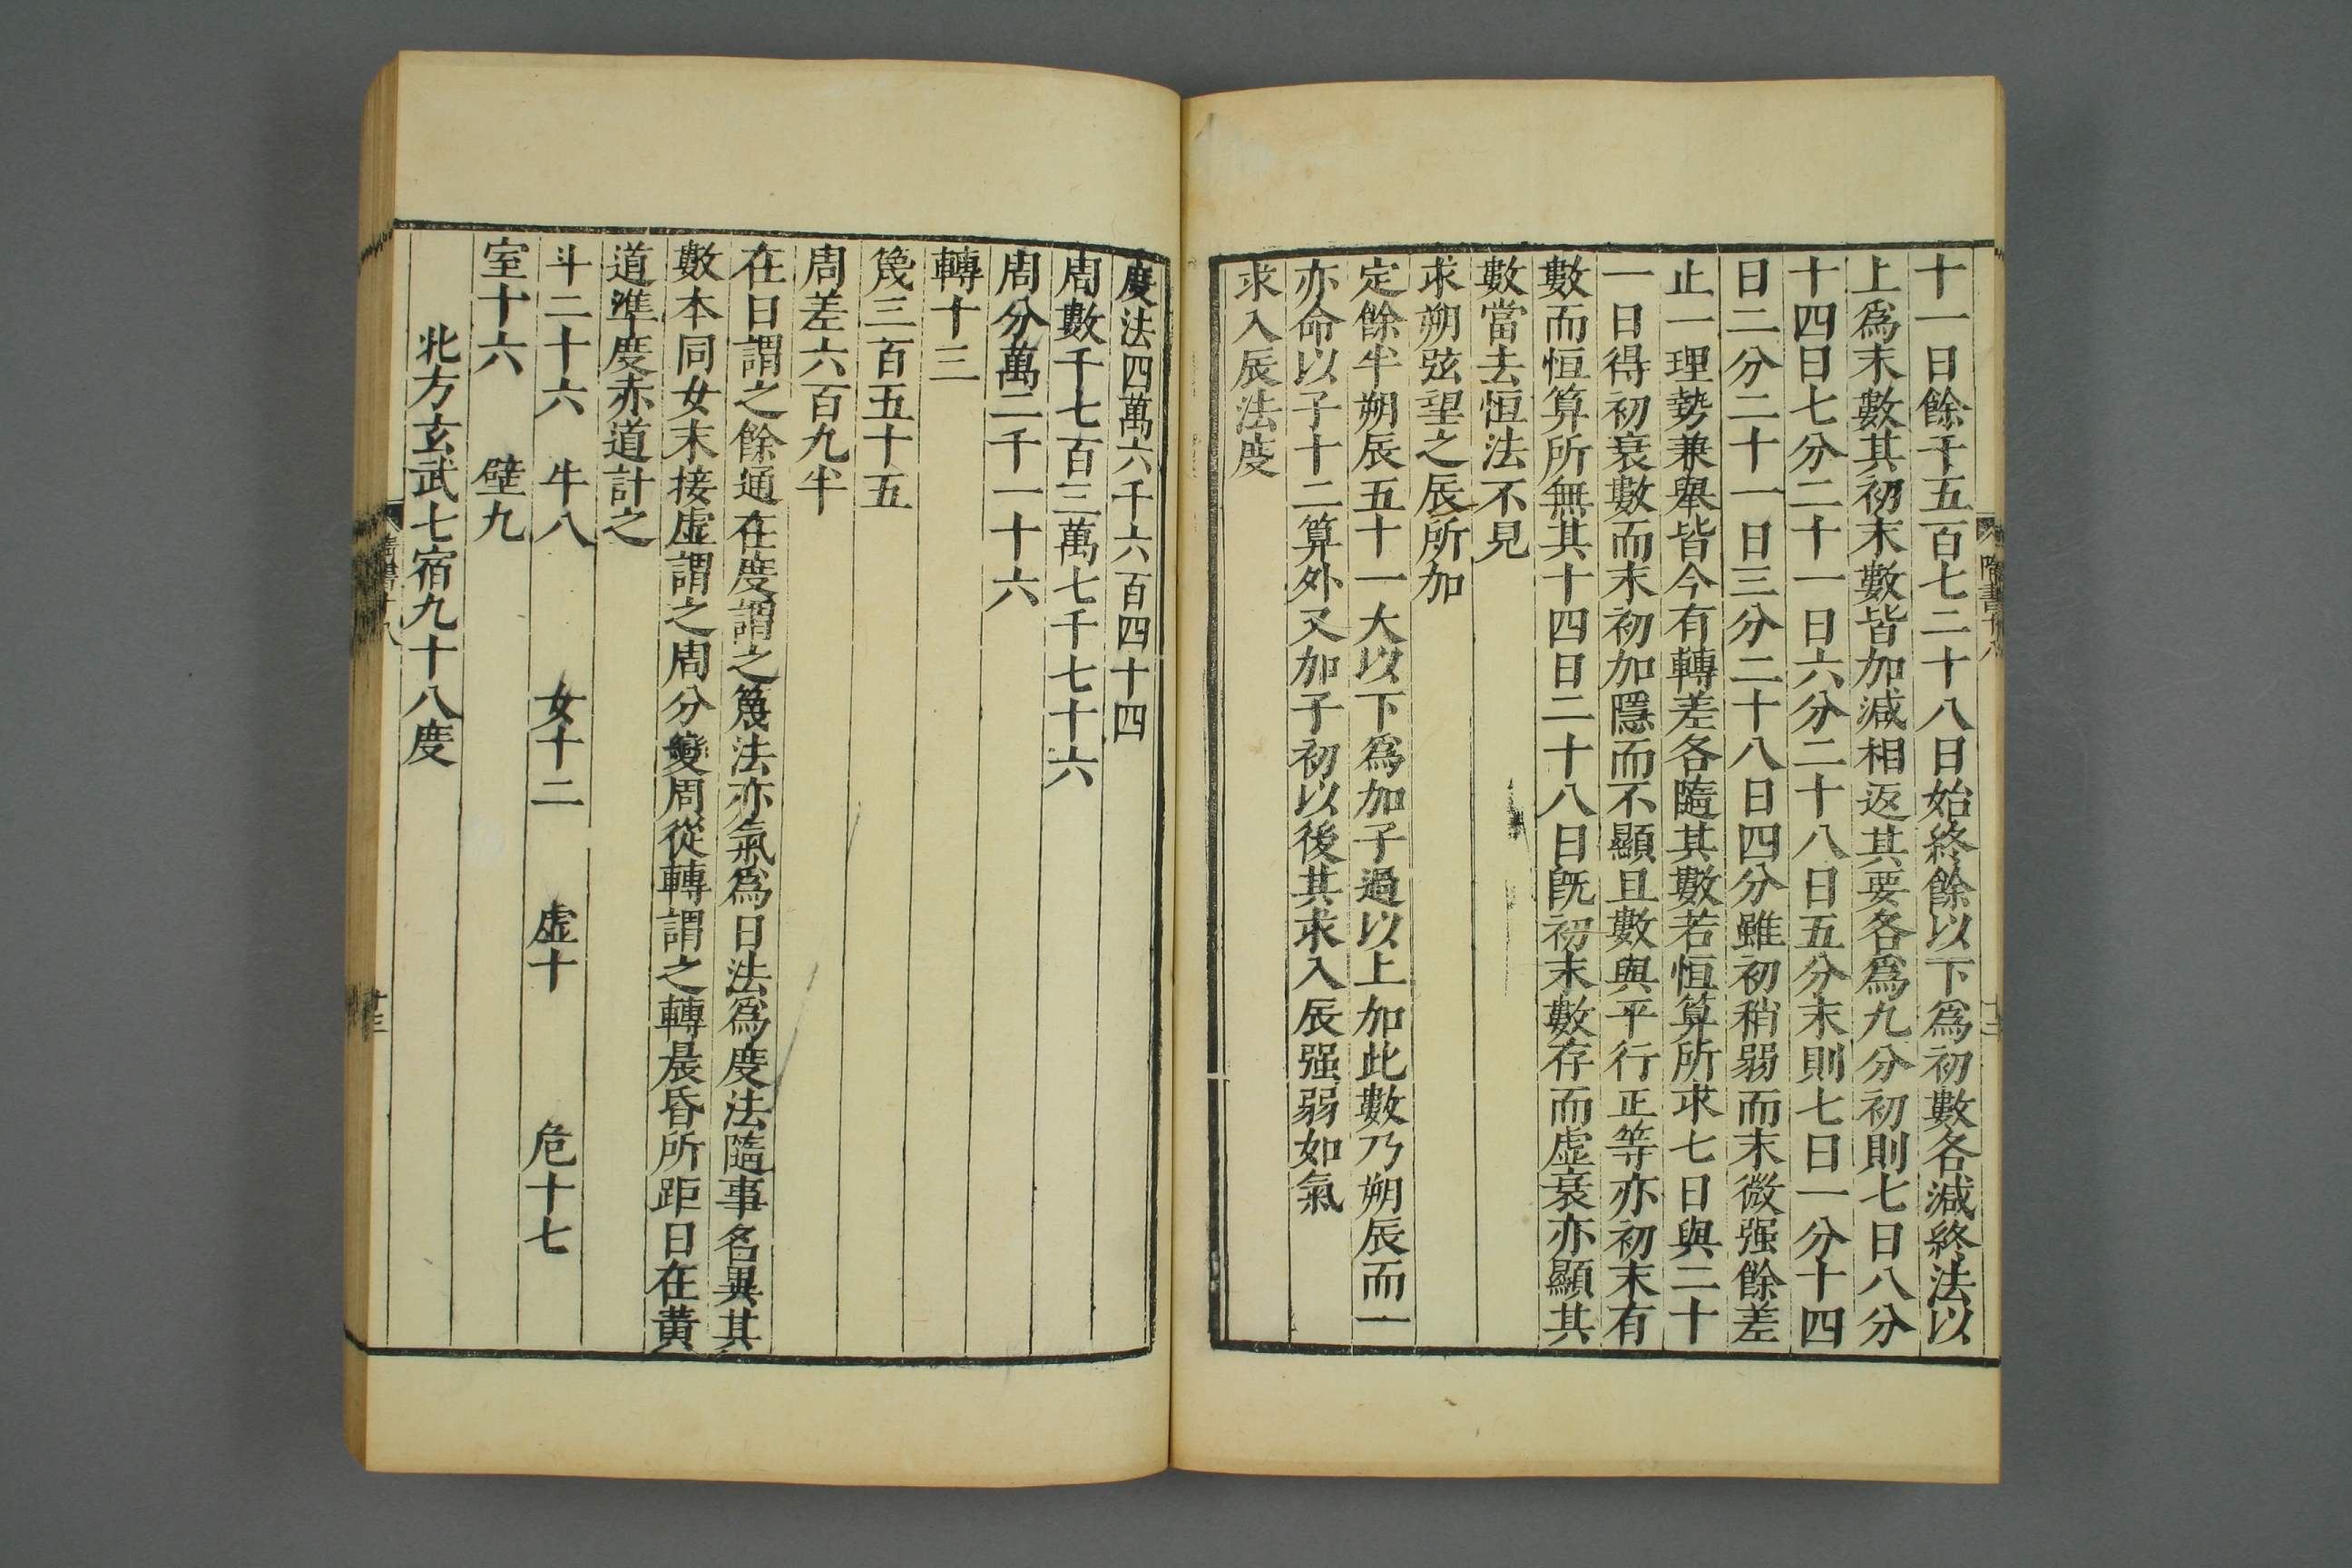 十一日餘千五百七二十八日始終餘以下爲初數各減終法以
上爲末數其初末數皆加減相返其要各爲九分初則七日八分
十四日七分二十一日六分二十八日五分末則七日一分十四
日二分二十一日三分二十八日四分雖初稍弱而末微强餘差
止一理勢兼舉皆今有轉差各隨其數若恒算所求七日與二十
一日得初衰數而末初加隱而不顯且數與平行正等亦初末有
數而恒算所無其十四日二十八日旣初末數存而虚衰亦顯其
數當去恒法不見
求朔弦望之辰所加
定餘半朔辰五十一大以下爲加子過以上加此數乃朔辰而一
亦命以子十二算外又加子初以後其求入辰强弱如氣
求入辰法度
度法四萬六千六百四十四
周數千七百三萬七千七十六
周分萬二千一十六
轉十三
篾三百五十五
周差六百九半
在日謂之餘通在度謂之篾法亦氣爲日法爲度法隨事名異其
數本同女末接虚謂之周分變周從轉謂之轉晨昏所距日在黃
道準度赤道計之
斗二十六 牛八 女十二 虚十 危十七
室十六 壁九
北方玄武七宿九十八度
隋書十八